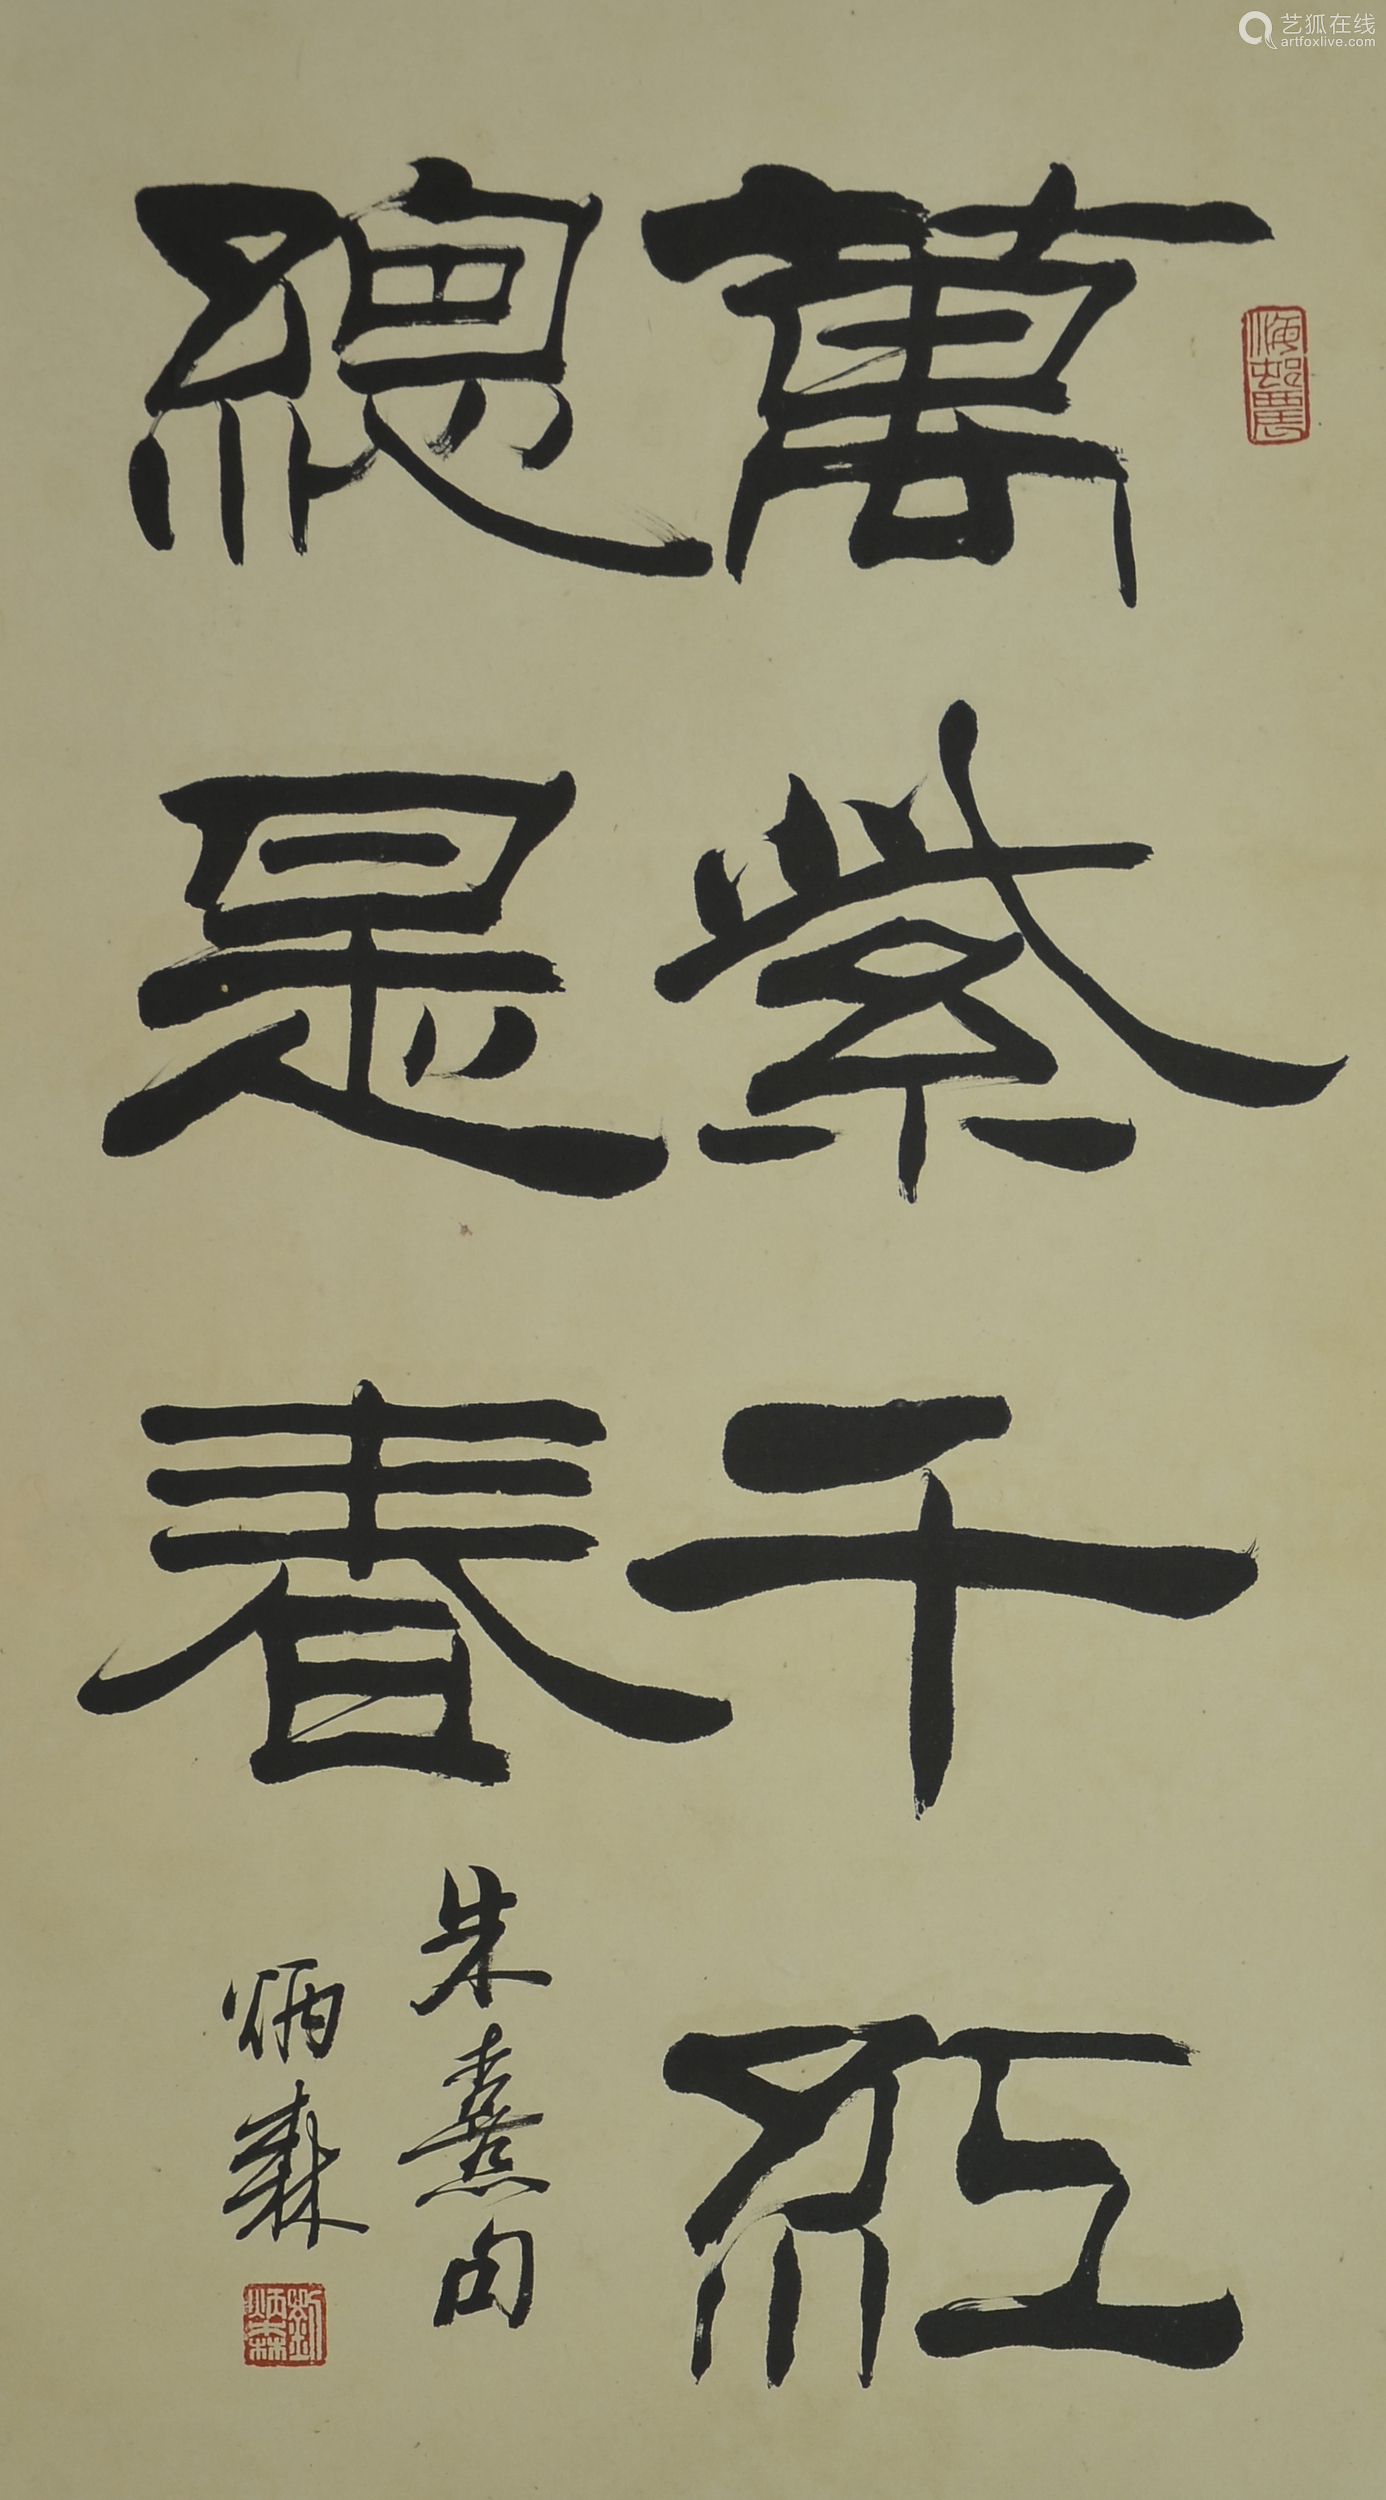 萬紫千紅
總是春
朱熹句
炳森
劉炳森
艺狐在线
artfoxlive.com